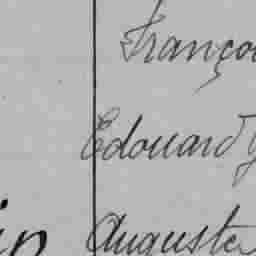 Franço
Edouard
Auguste